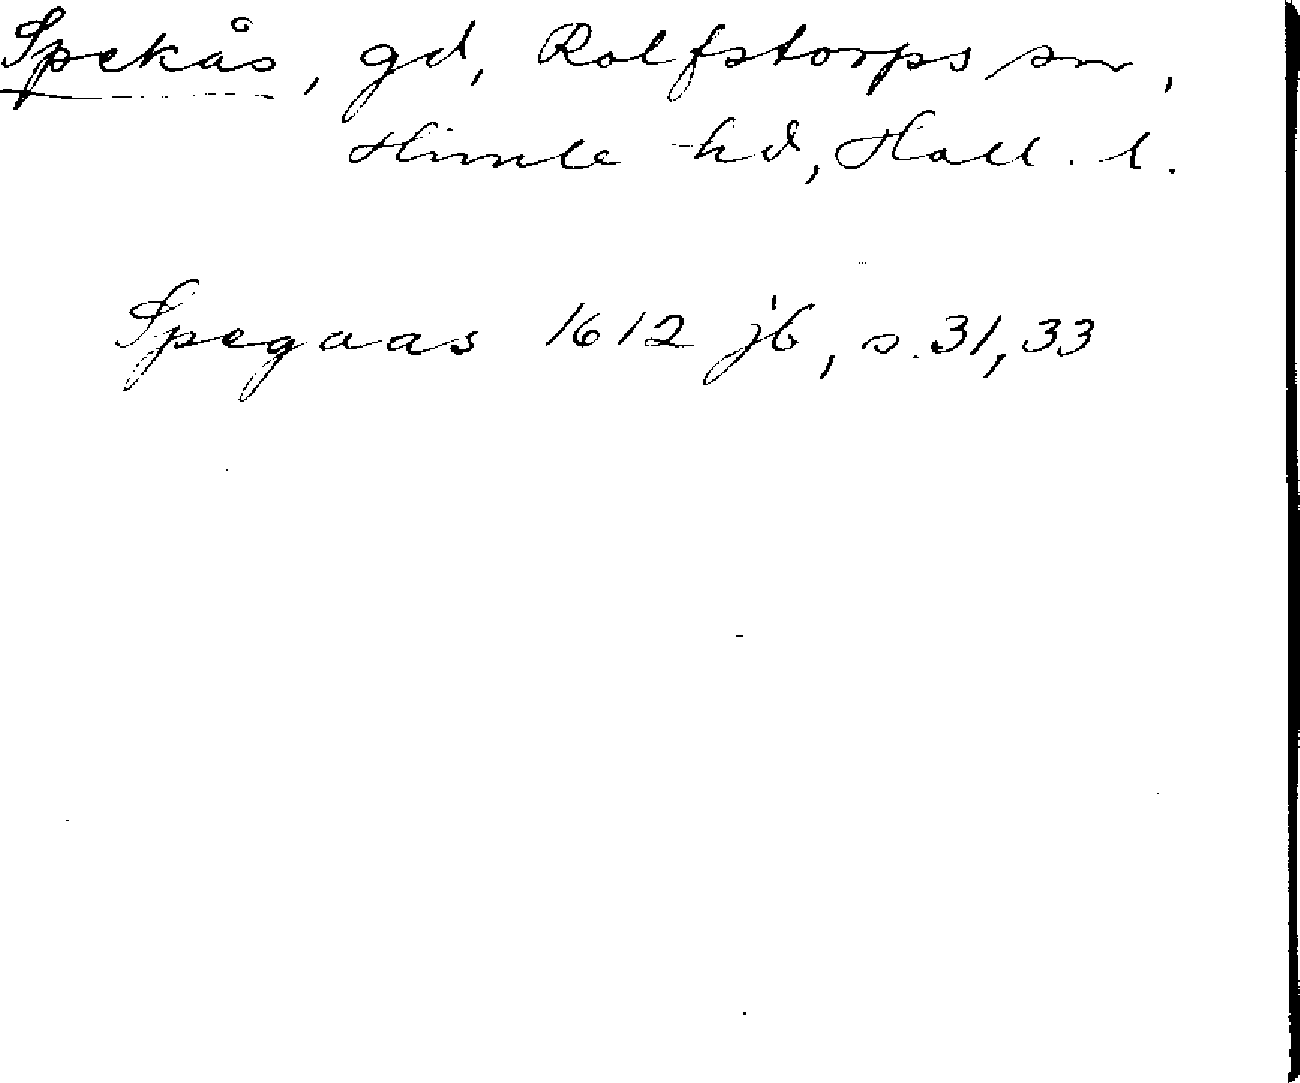 Spekås, gd, Rolfstorps sn,
Himle hd, Hall. l.
Spegaas 1612 jb, s. 31, 33